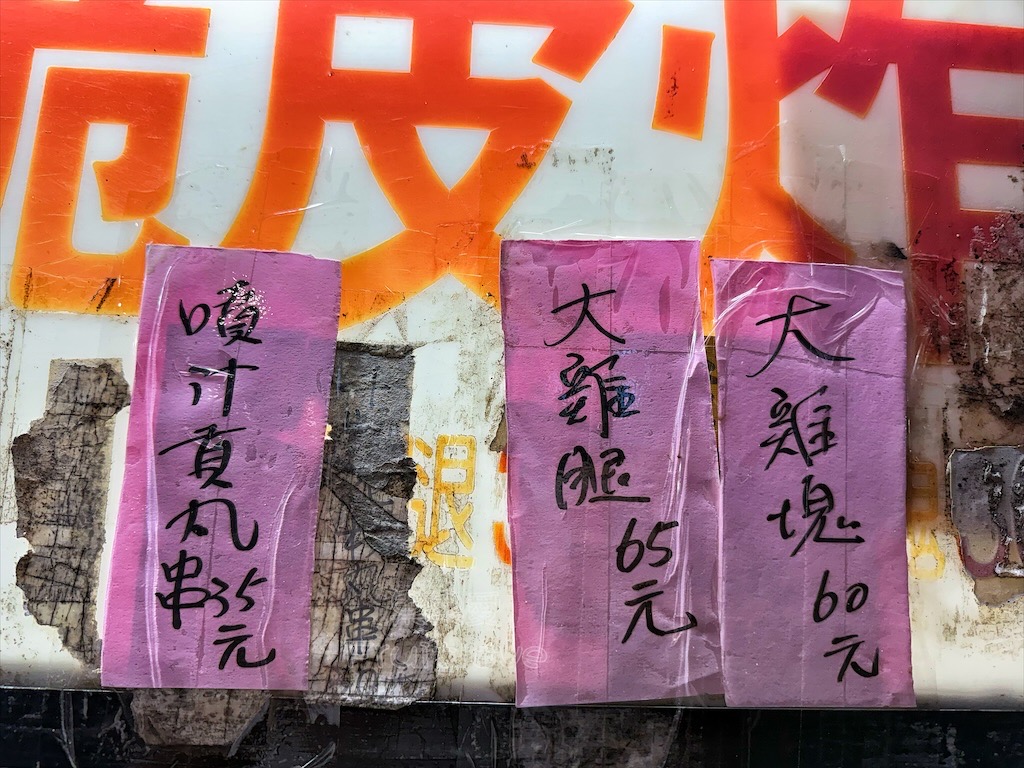 脆皮炸
噴汁貢丸串35元
大雞腿65元
大雞塊60元
退
串